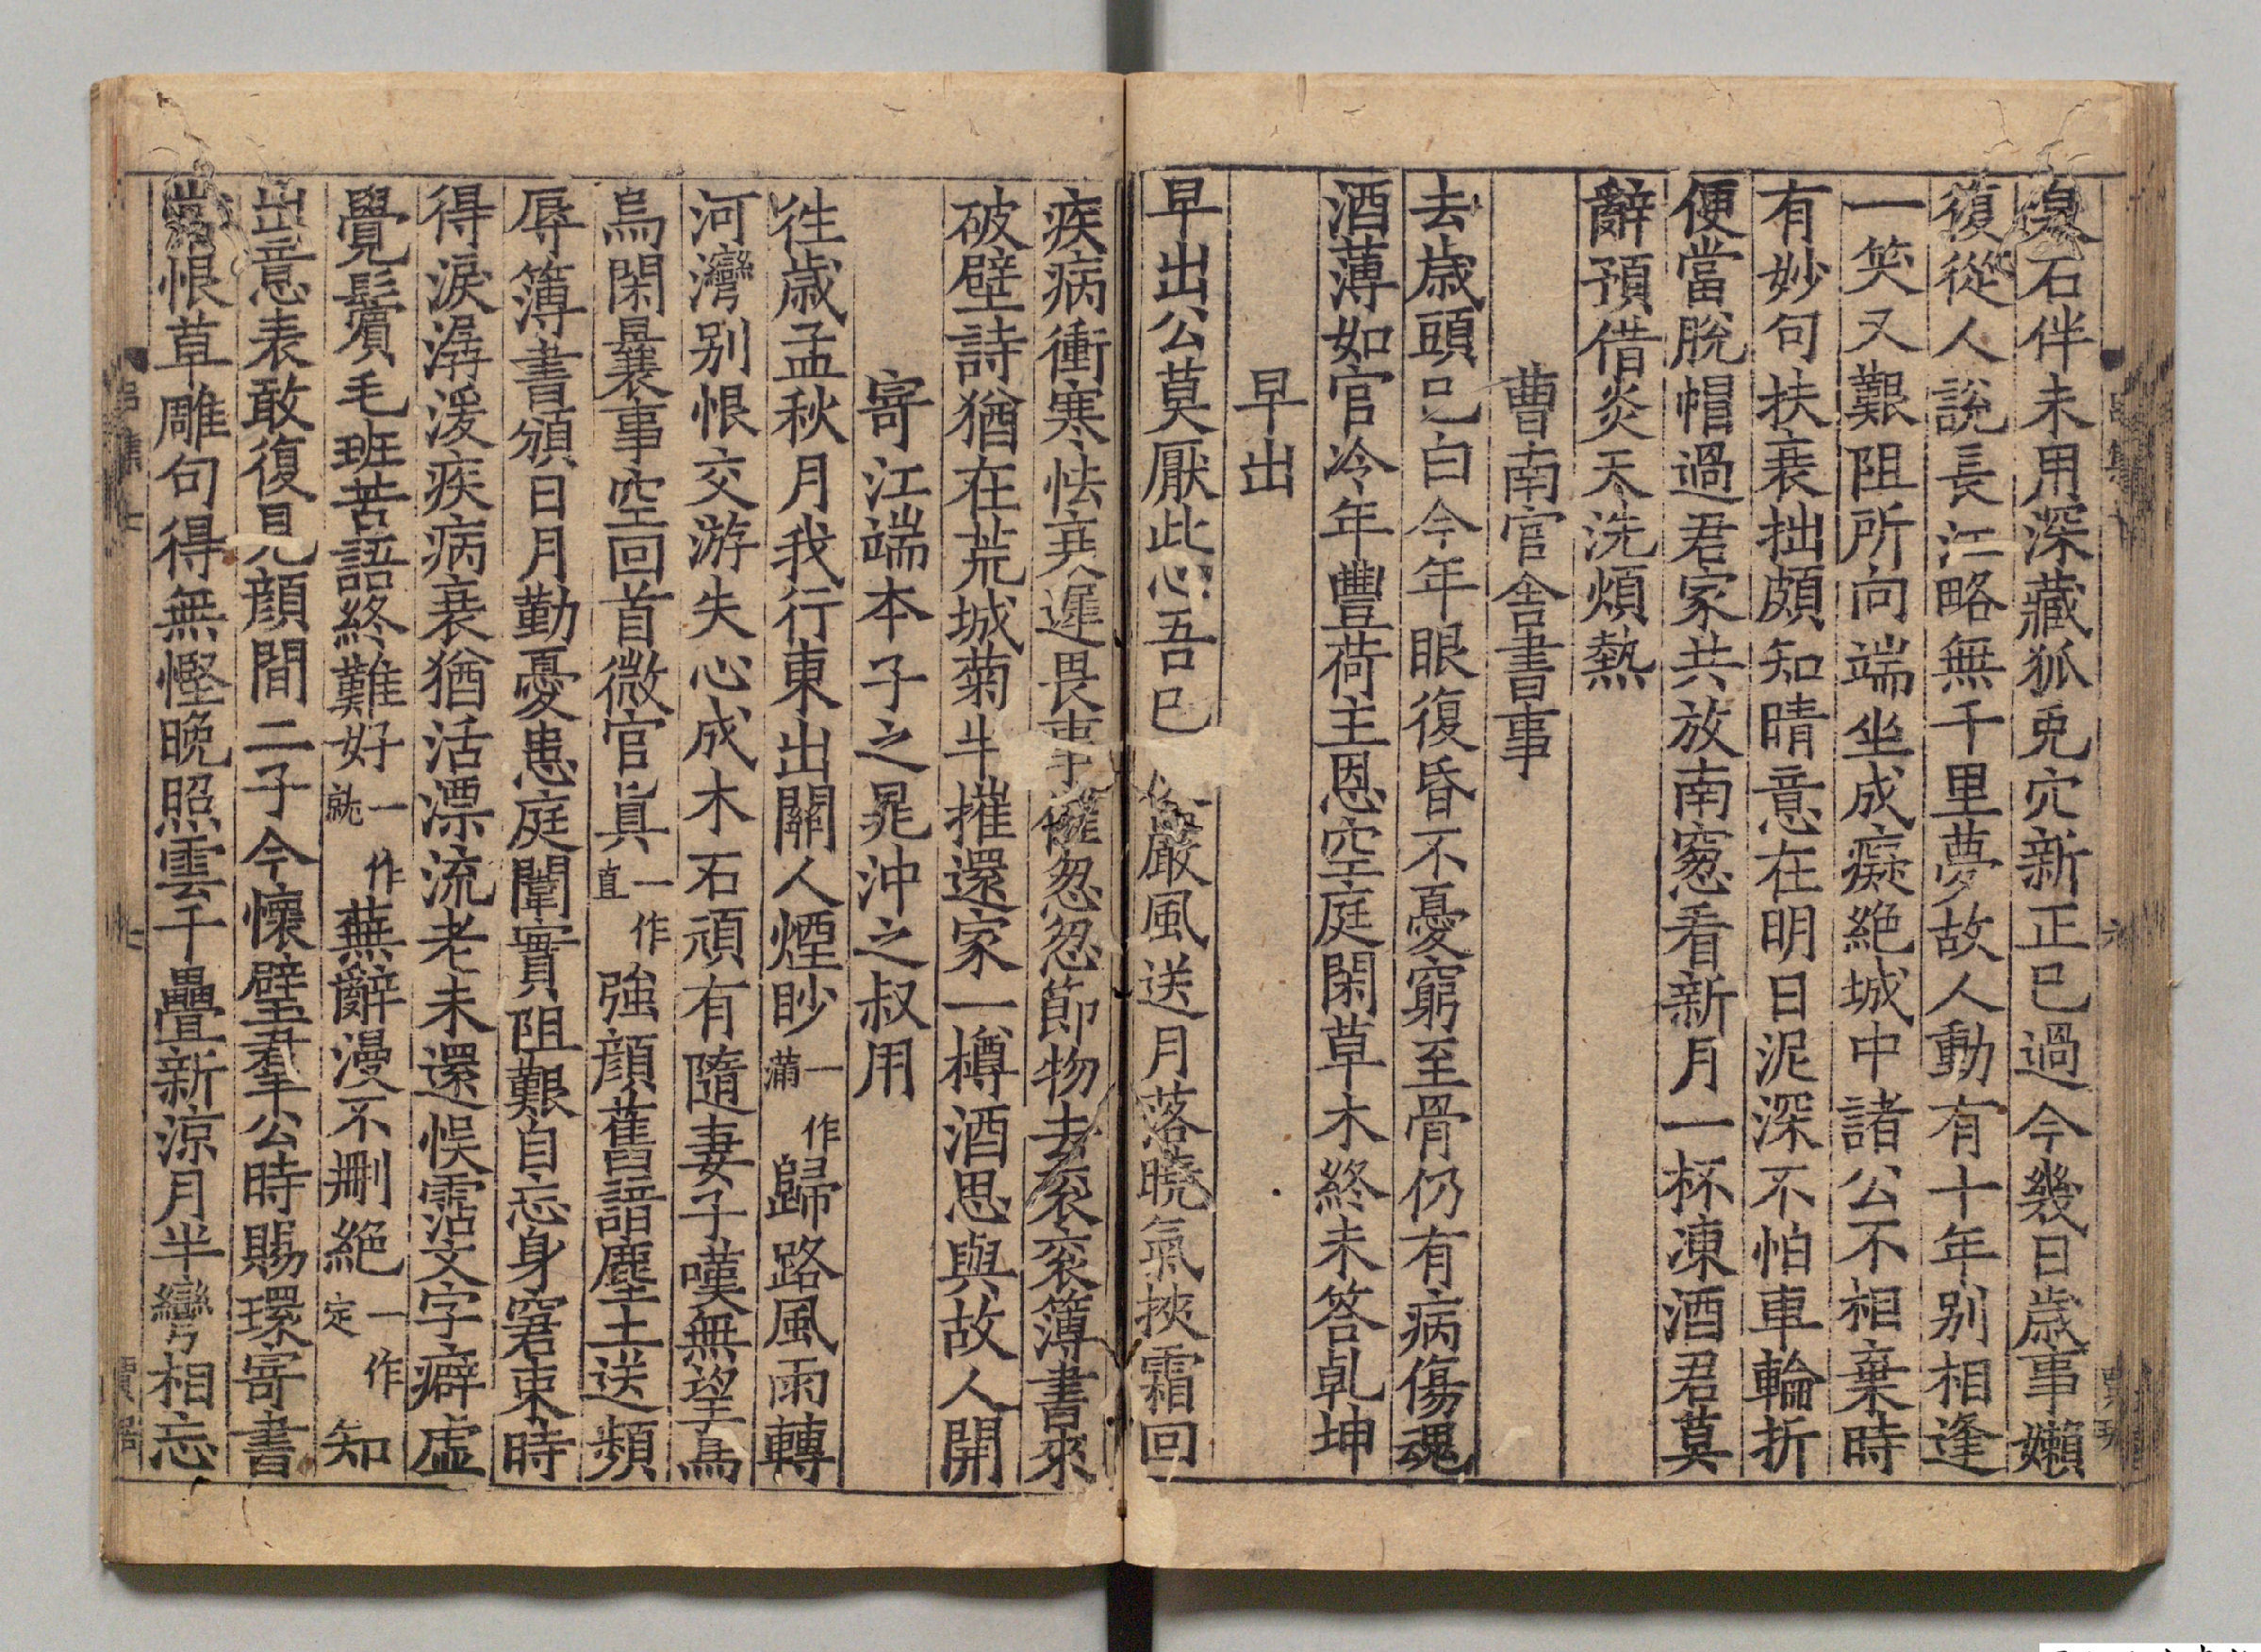 泉石伴未用深藏狐兎穴新正已過今幾日歲事嬾
復從人說長江略無千里夢故人動有十年別相逢
一笑又艱阻所向端坐成癡絶城中諸公不相棄時
有妙句扶衰拙頗知晴意在明日泥深不怕車輪折
便當脫帽過君家共放南窻看新月一杯凍酒君莫
辭預借炎天洗煩熱
曹南官舍書事
去歲頭已白今年眼復昏不憂窮至骨仍有病傷魂
酒薄如官冷年豐荷主恩空庭閑草木終未答乹坤
早出
早出公莫厭此心吾已 嚴風送月落曉氣挾霜回
疾病衝寒怯衰遲畏事催怱怱節物去衮衮簿書來
破壁詩猶在荒城菊半摧還家一樽酒思與故人開
寄江端本子之晁沖之叔用
徃歲孟秋月我行東出關人煙眇一作滿歸路風雨轉
河灣別恨交游失心成木石頑有隨妻子嘆無望馬
烏閑曩事空回首微官眞一作直強顔舊語塵土送頻
辱簿書頒日月勤憂患庭闈實阻艱自忘身窘束時
得淚潺湲疾病衰猶活漂流老未還悮霑文字癖虛
覺鬢毛班苦語終難好一作就蕪辭漫不刪絶一作定知
出意表敢復見顔間二子今懷璧羣公時賜環寄書
當恨草雕句得無慳晚照雲千疊新涼月半彎相忘